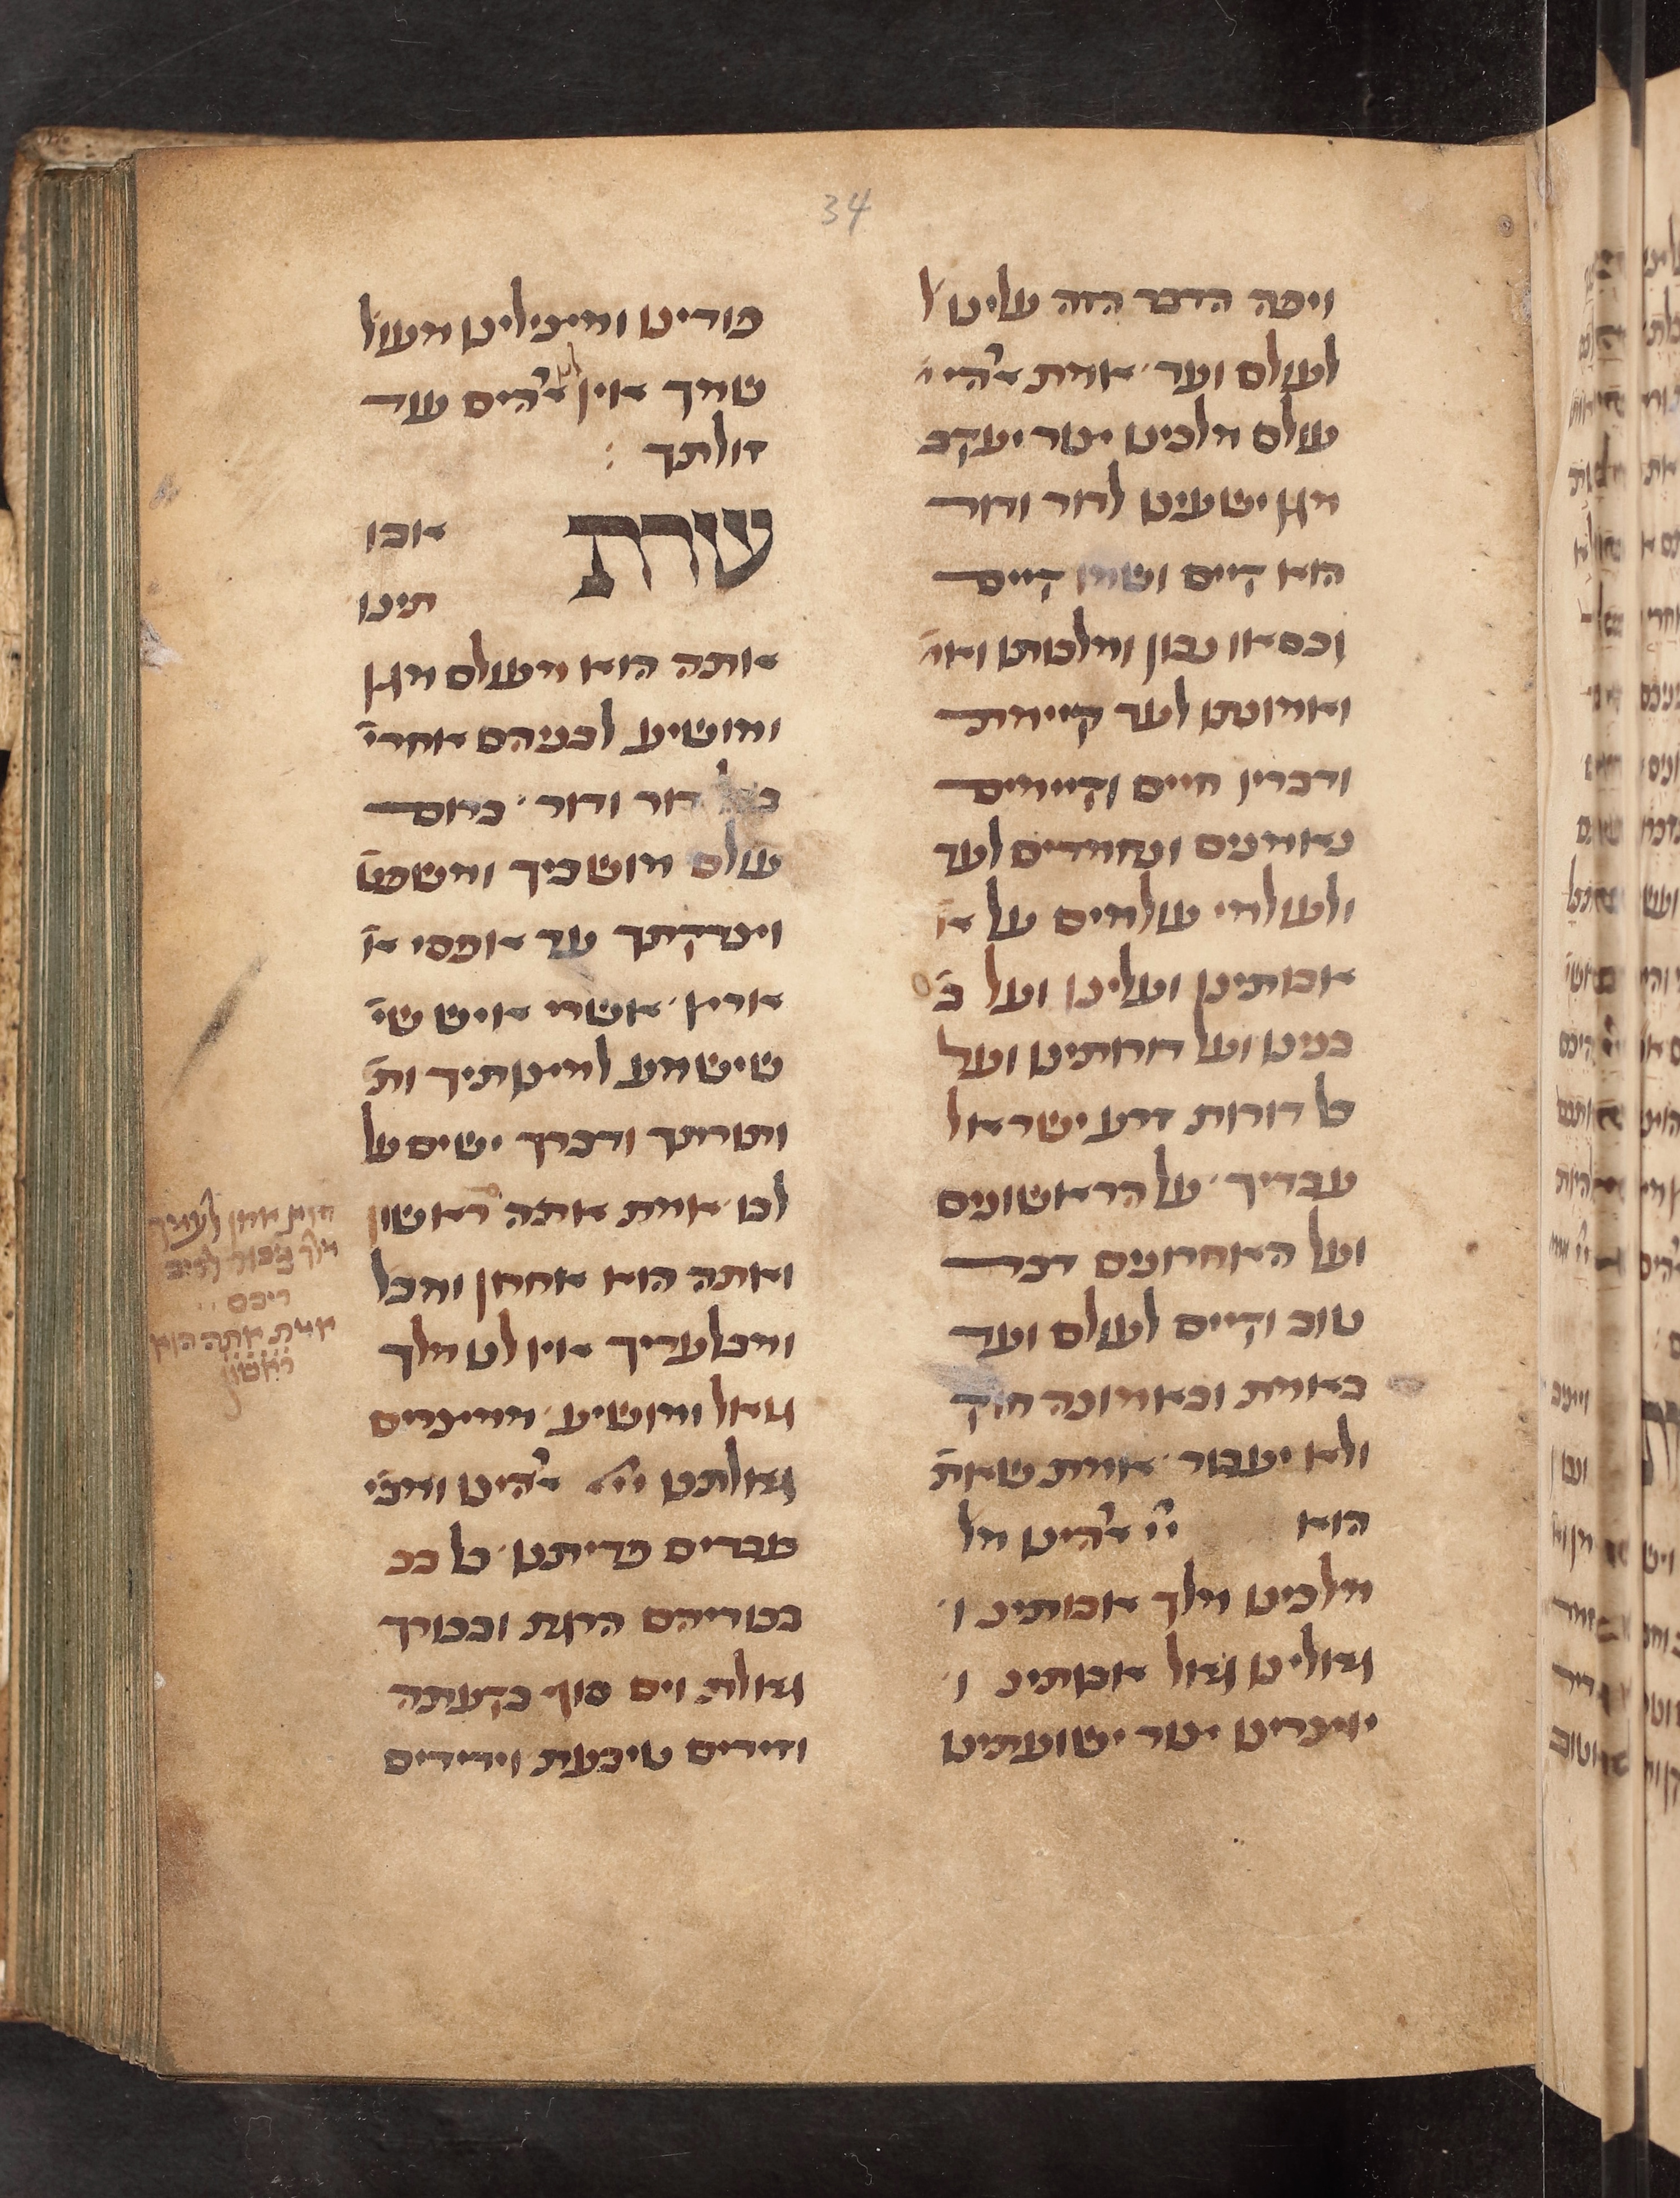 34
ויפה הדבר הזה עלינו ל
לעולם ועד אמת אלהי י
עולם מלכינו צור יעקב
מגן ישעינו לדור ודור
הוא קיים ושמו קיים
וכסאו נכון ומלכותו ואי
ואמונתו לעד קיימת
ודבריו חיים וקיימים
נאמנים ונחמדים לעד
ולעולמי עולמים על א
אבותינו ועלינו ועל ב
בנינו ועל דורותינו ועל
כל דורות זרע ישראל
עבדיך על הראשונים
ועל האחרונים דבר
טוב וקיים לעולם ועד
באמת ובאמונה חוק
ולא יעבור אמת שאת
הוא יי אלהינו מל
מלכינו מלך אבותינו
גואלינו גואל אבותינו
יוצרינו צור ישועתינו
פודינו ומצילינו מעול
שמך אין לנו אלהים עוד
זולתך :
עזרת אבו
תינו
אתה הוא מעולם מגן
ומושיע לבניהם אחרי
בכל דור ודור ברום
עולם מושביך ומשפט
וצדקתך עד אפסי א
ארץ אשרי איש שי
שישמע למצותיך ות
ותורתך ודברך ישים על
לבו אמת אתה ראשון
ואתה הוא אחרון ומבל
ומבלעדיך אין לנו מלך
גואל ומושיע ממצרים
גאלתנו ייי אלהינו ומבי
עבדים פדיתנו כל בכ
בכוריהם הרגת ובכורך
גאלת וים סוף בקעתה
וזדים טיבעת וידידים
אמת אתה הוא
ראשון